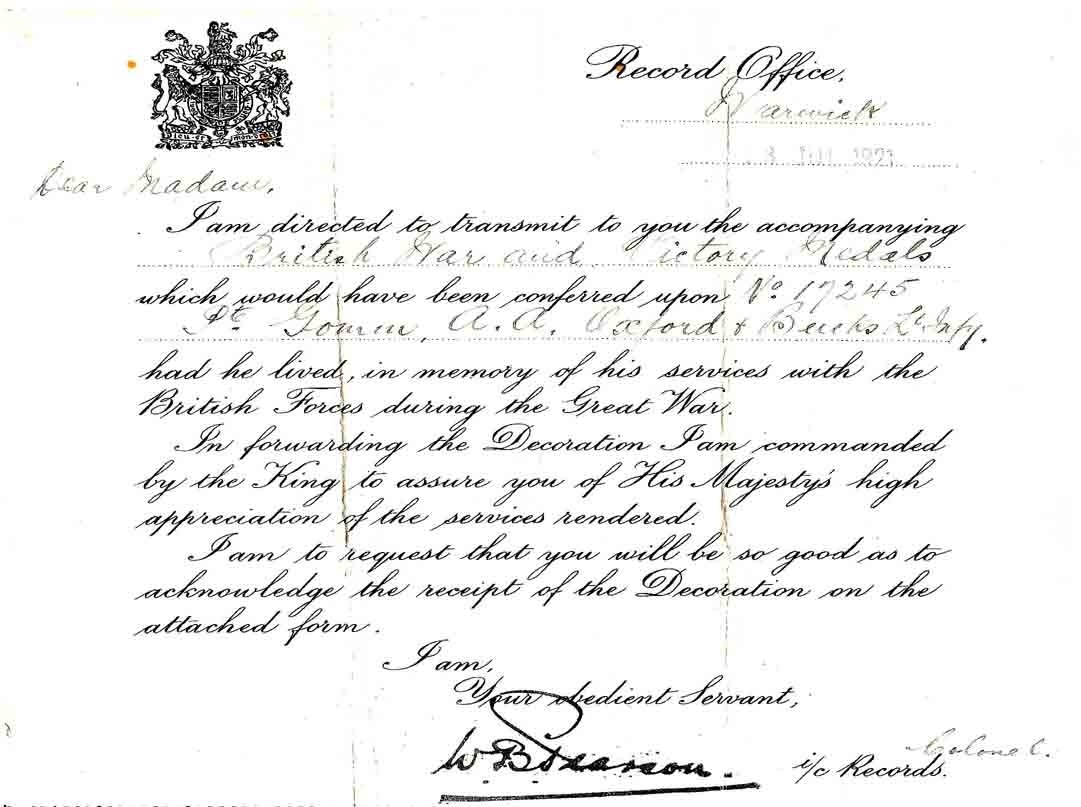 Record Office,
Warwick
1921
Dear Madam,
I am directed to transmit to you the accompanying
British War and Victory Medals
which would have been conferred upon No. 17245
Pte A. A. Oxford & Bucks Lt. Infy.
had he lived, in memory of his services with the
British Forces during the Great War.
In forwarding the Decoration I am commanded
by the King to assure you of His Majesty's high
appreciation of the services rendered.
I am to request that you will be so good as to
acknowledge the receipt of the Decoration on the
attached form.
I am,
Your obedient Servant,
W B Pearson.
Colonel.
i/c Records.